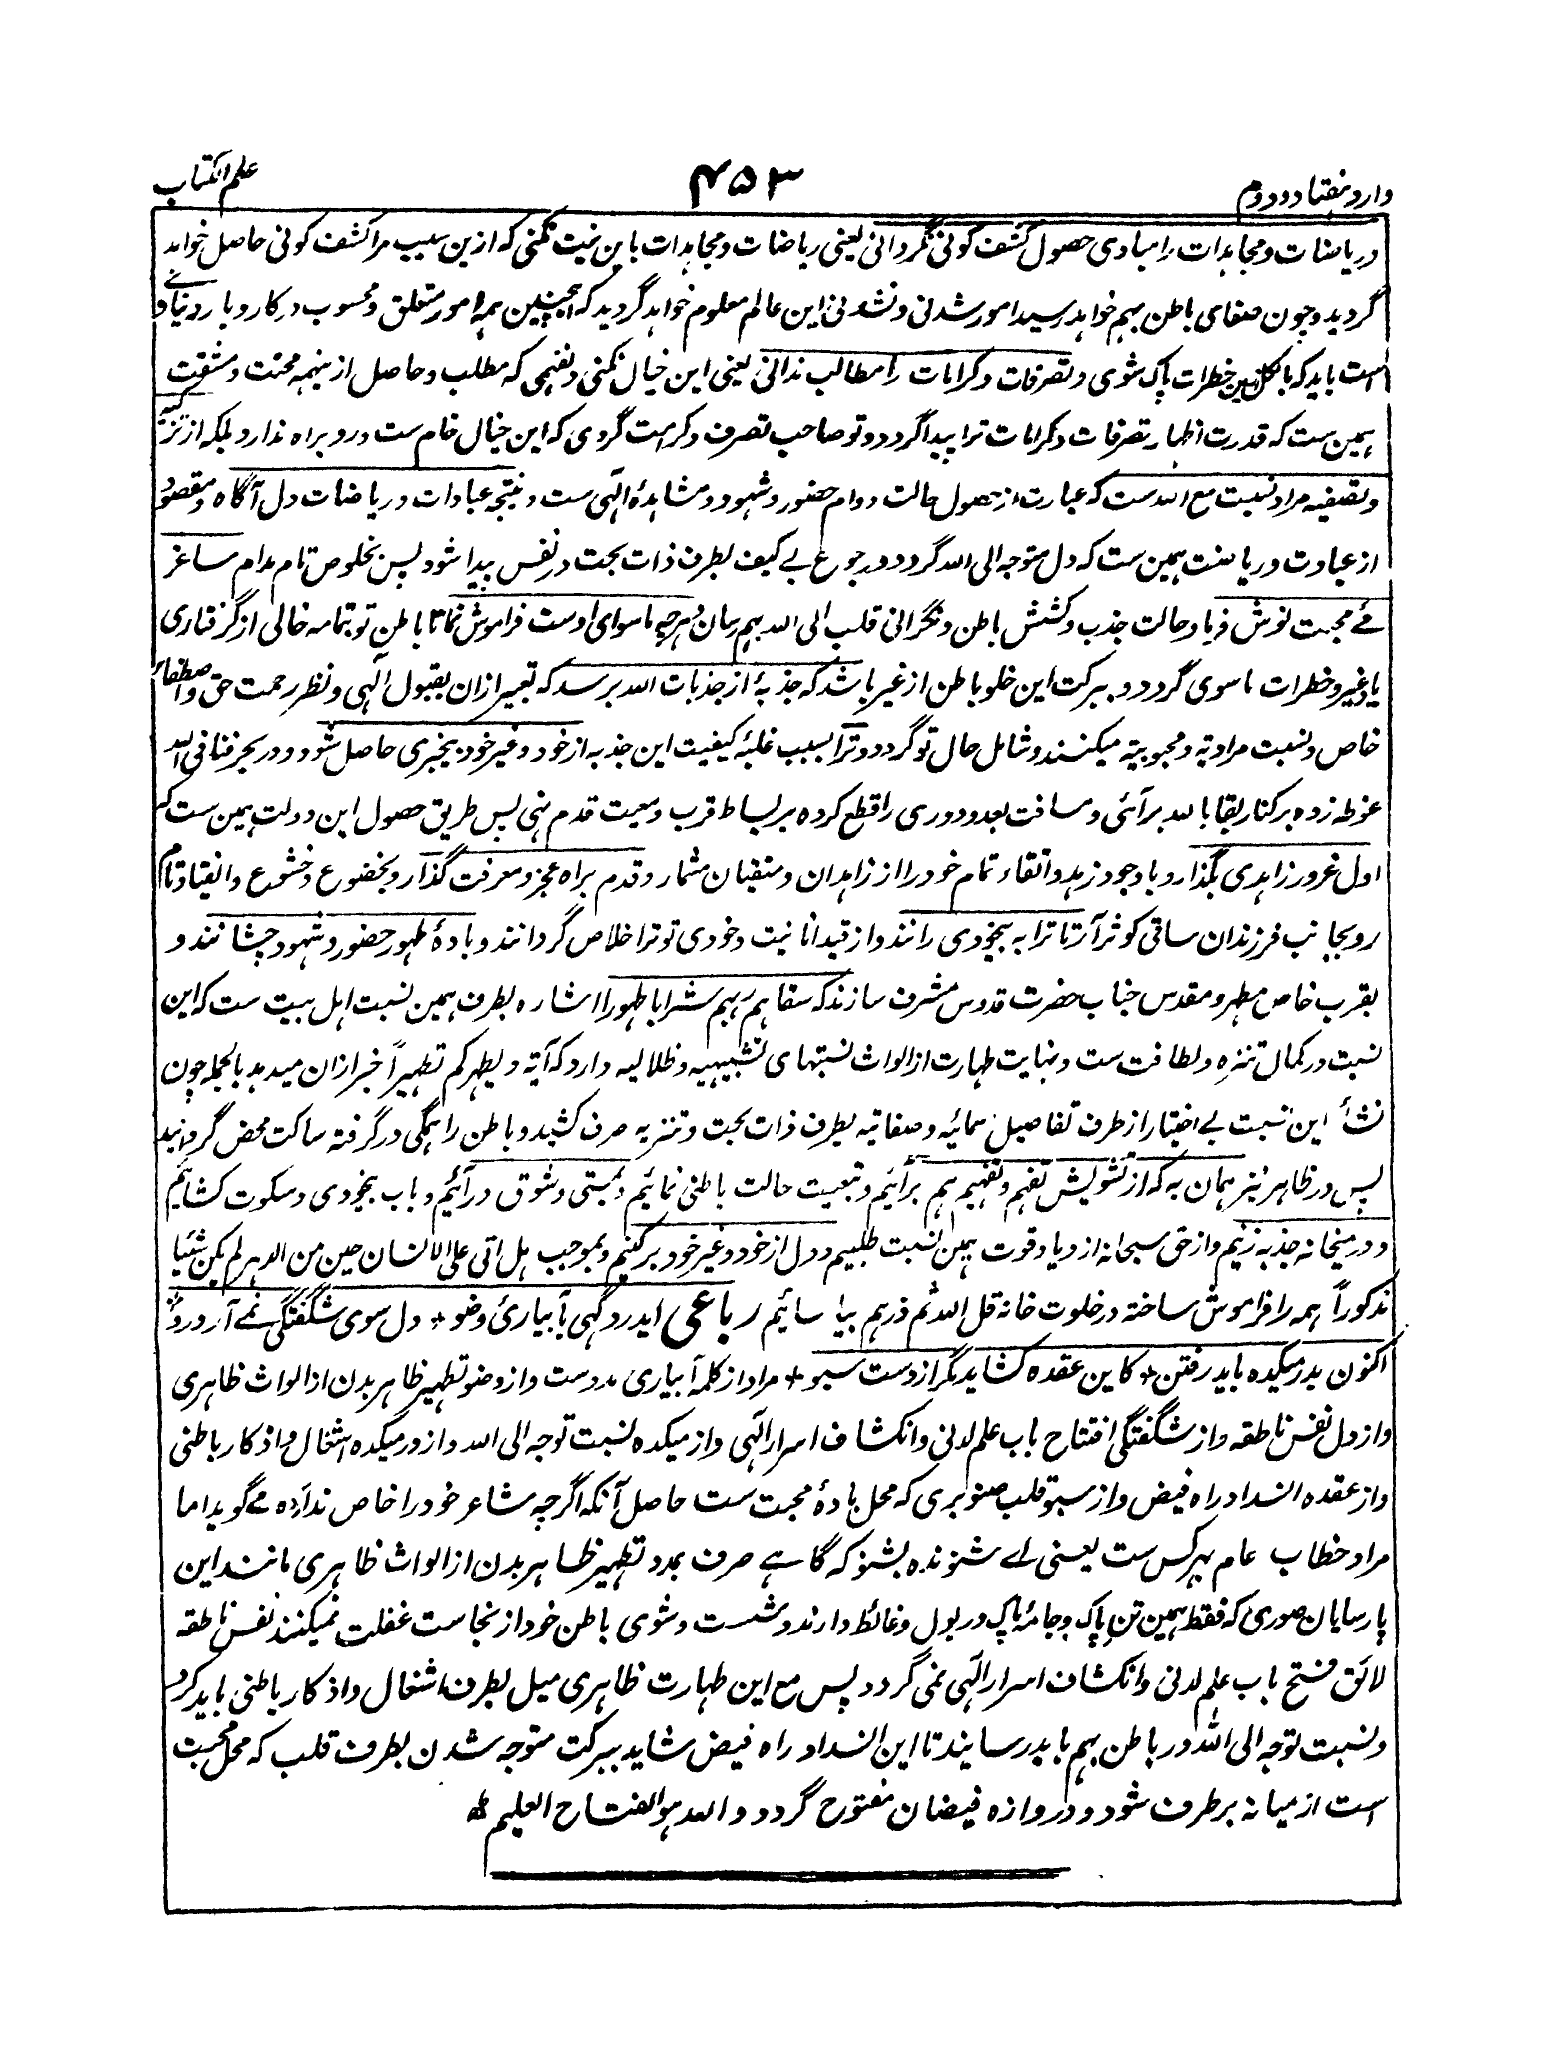 وارد هفتاد و دوم
۴۵۳
علم الکتاب
و ریاضات و مجاهدات را مبادی حصول کشف کونی نگردانی یعنی ریاضات و مجاهدات باین نیت نکنی که ازین سبب مرا کشف کونی حاصل خواهد
گردید و چون صفای باطن بهم خواهد رسید امور شدنی و نشدنی این عالم معلوم خواهد گردید که اینچنین همه امور متعلق و محسوب در کار و بار دنیاوی
است باید که بالکل ازین خطرات پاک شوی و تصرفات و کرامات را مطالب ندانی یعنی این خیال نکنی و نفهمی که مطلب و حاصل ازینهمه محنت و مشقت
همین ست که قدرت اظهار تصرفات و کرامات ترا پیدا گردد و تو صاحب تصرف و کرامت گردی که این خیال خام ست و رو براه ندارد بلکه از تزکیه
و تصفیه مراد نسبت مع الله ست که عبارت از حصول حالت دوام حضور و شهود و مشاهدهٔ الهی ست و نتیجه عبادات و ریاضات دل آگاه و مقصود
از عبادت و ریاضت همین ست که دل متوجه الی الله گردد و رجوع بے کیف بطرف ذات بحت در نفس پیدا شود پس بخلوص تام مدام ساغر
مے محبت نوش فرما و حالت جذب و کشش باطن و نگرانی قلب الی الله بهم رسان و هرچه ماسوای اوست فراموش نما تا باطن تو بتمامه خالی از گرفتاری
یاد غیر و خطرات ماسوی گردد و ببرکت این خلو باطن از غیر باشد که جذبهٔ از جذبات الله برسد که تعبیر ازان بقبول الهی و نظر رحمت حق و اصطفاء
خاص و نسبت مرادیة و محبوبیة میکنند و شامل حال تو گردد و ترا بسبب غلبهٔ کیفیت این جذبه از خود و غیر خود بیخبری حاصل شود و در بحر فنا فی الله
غوطه زده بر کنار بقا بالله برآئی و مسافت بعد و دوری را قطع کرده بر بساط قرب و معیت قدم نهی پس طریق حصول این دولت همین ست که
اول غرور زاهدی بگذار و با وجود زهد و اتقاء تمام خود را از زاهدان و متقیان مشمار و قدم براه عجز و معرفت گذار و بخضوع و خشوع و انقیاد تام
رو بجانب فرزندان ساقی کوثر آر تا ترا به بیخودی رانند و از قید انانیت و خودی تو ترا خلاص گردانند و بادهٔ طهور حضور و شهود چشانند و
بقرب خاص مطهر و مقدس جناب حضرت قدوس مشرف سازند که سقاهم ربهم شرابا طهورا اشاره بطرف همین نسبت اهل بیت ست که این
نسبت در کمال تنزه و لطافت ست و نهایت طهارت از الواث نسبتهای تشبیهیه و ظلالیه دارد که آیة و یطهرکم تطهیراً خبر ازان میدهد بالجمله چون
نشأ این نسبت بے اختیار از طرف تفاصیل سمائیه و صفاتیه بطرف ذات بحت و تنزیه صرف کشید و باطن را همگی در گرفته ساکت محض گردانید
پس در ظاهر نیز همان به که از تشویش تفهم و تفهیم هم برآئیم و تبعیت حالت باطنی نمائیم و بمستی و شوق درآئیم و باب بیخودی و سکوت کشائیم
و در میخانه جذبه زنیم و از حق سبحانه ازدیاد قوت همین نسبت طلبیم و دل از خود و غیر خود برکنیم و بموجب هل اتی علی الانسان حین من الدهر لم یکن شیئا
مذکوراً همه را فراموش ساخته در خلوت خانه قل الله ثم ذرهم بیا سائیم رباعی ایدرد گهی بآبیاریٔ وضو + دل سوی شگفتگی نمے آرد رو
اکنون بدر میکده باید رفتن + کاین عقده کشاید مگر از دست سبو + مراد از کلمه آبیاری مدد ست و از وضو تطهیر ظاهر بدن از الواث ظاهری
و از دل نفس ناطقه و از شگفتگی افتتاح باب علم لدنی و انکشاف اسرار الهی و از میکده نسبت توجه الی الله و از در میکده اشغال و اذکار باطنی
و از عقده انسداد راه فیض و از سبو قلب صنوبری که محل بادهٔ محبت ست حاصل آنکه اگرچه شاعر خود را خاص نداده مے گوید اما
مراد خطاب عام بهر کس ست یعنی اے شنونده بشنو که گاہے صرف بمدد تطهیر ظاهر بدن از الواث ظاهری مانند این
پارسایان صوری که فقط همین تن پاک و جامهٔ پاک در بول و غائط دارند و شست و شوی باطن خود از نجاست غفلت نمیکنند نفس ناطقه
لائق فتح باب علم لدنی و انکشاف اسرار الهی نمی گردد پس مع این طهارت ظاهری میل بطرف اشغال و اذکار باطنی باید کرد
و نسبت توجه الی الله در باطن بهم باید رسانید تا این انسداد راه فیض شاید ببرکت متوجه شدن بطرف قلب که محل محبت
است از میانه برطرف شود و دروازه فیضان مفتوح گردد والله هو الفتاح العلیم